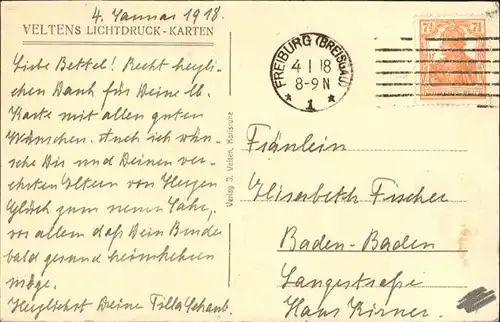 4. Januar 1918.
VELTENS LICHTDRUCK-KARTEN
Liebe Bettel! Recht herzli-
chen Dank für Deine lb.
Karte mit allen guten
Wünschen. Auch ich wün-
sche Dir und Deinen ver-
ehrten Eltern von Herzen
Glück zum neuen Jahr,
vor allem daß Dein Bruder
bald gesund heimkehren
möge.
Herzlichst Deine Tilla Schaub.
Verlag J. Velten, Karlsruhe
FREIBURG (BREISGAU)
4 1 18
8-9 N
* 1 *
7½ 7½
Fräulein
Elisabeth Fischer
Baden-Baden
Langestraße
Haus Kirner.